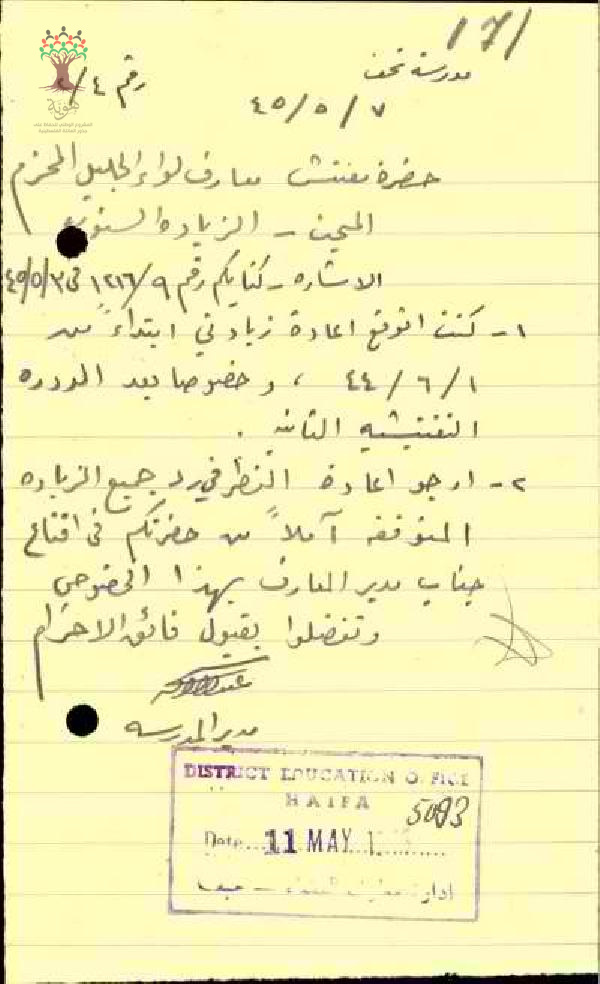 171
مدرسة نحف
رقم ٢/٤
٤٥/٥/٧
حضرة مفتش معارف لواء الجليل المحترم
المبحث - الزيادة السنوية
الاشاره - كتابكم رقم ١٢١٦/٩ في ٤٥/٥/٣
١- كنت اتوقع اعادة زيادتي ابتداءً من
٤٤/٦/١ ، وخصوصا بعد الدوره
التفتيشيه الثانيه .
٢- ارجو اعادة النظر في رد جميع الزياده
المتوقفه آملاً من حضرتكم في اقناع
جناب مدير المعارف بهذا الخصوص
وتفضلوا بقبول فائق الاحترام
مدير المدرسه
DISTRICT EDUCATION OFFICE
HAIFA
5093
Date 11 MAY
ادارة معارف اللواء - حيفا
هوية